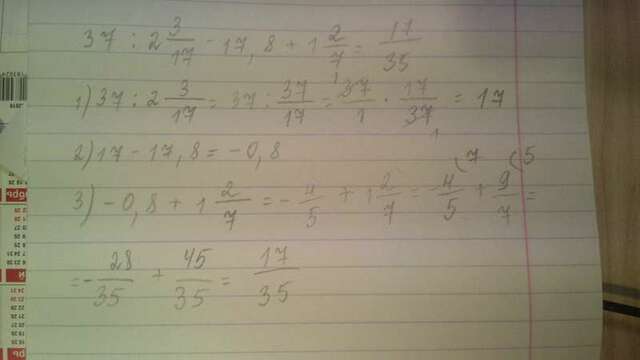 37 : 2 3/17 - 17,8 + 1 2/7 = 17/35
1) 37 : 2 3/17 = 37 : 37/17 = 37/1 · 17/37 = 17
2) 17 - 17,8 = -0,8
3) -0,8 + 1 2/7 = -4/5 + 1 2/7 = -4/5 + 9/7 =
= -28/35 + 45/35 = 17/35